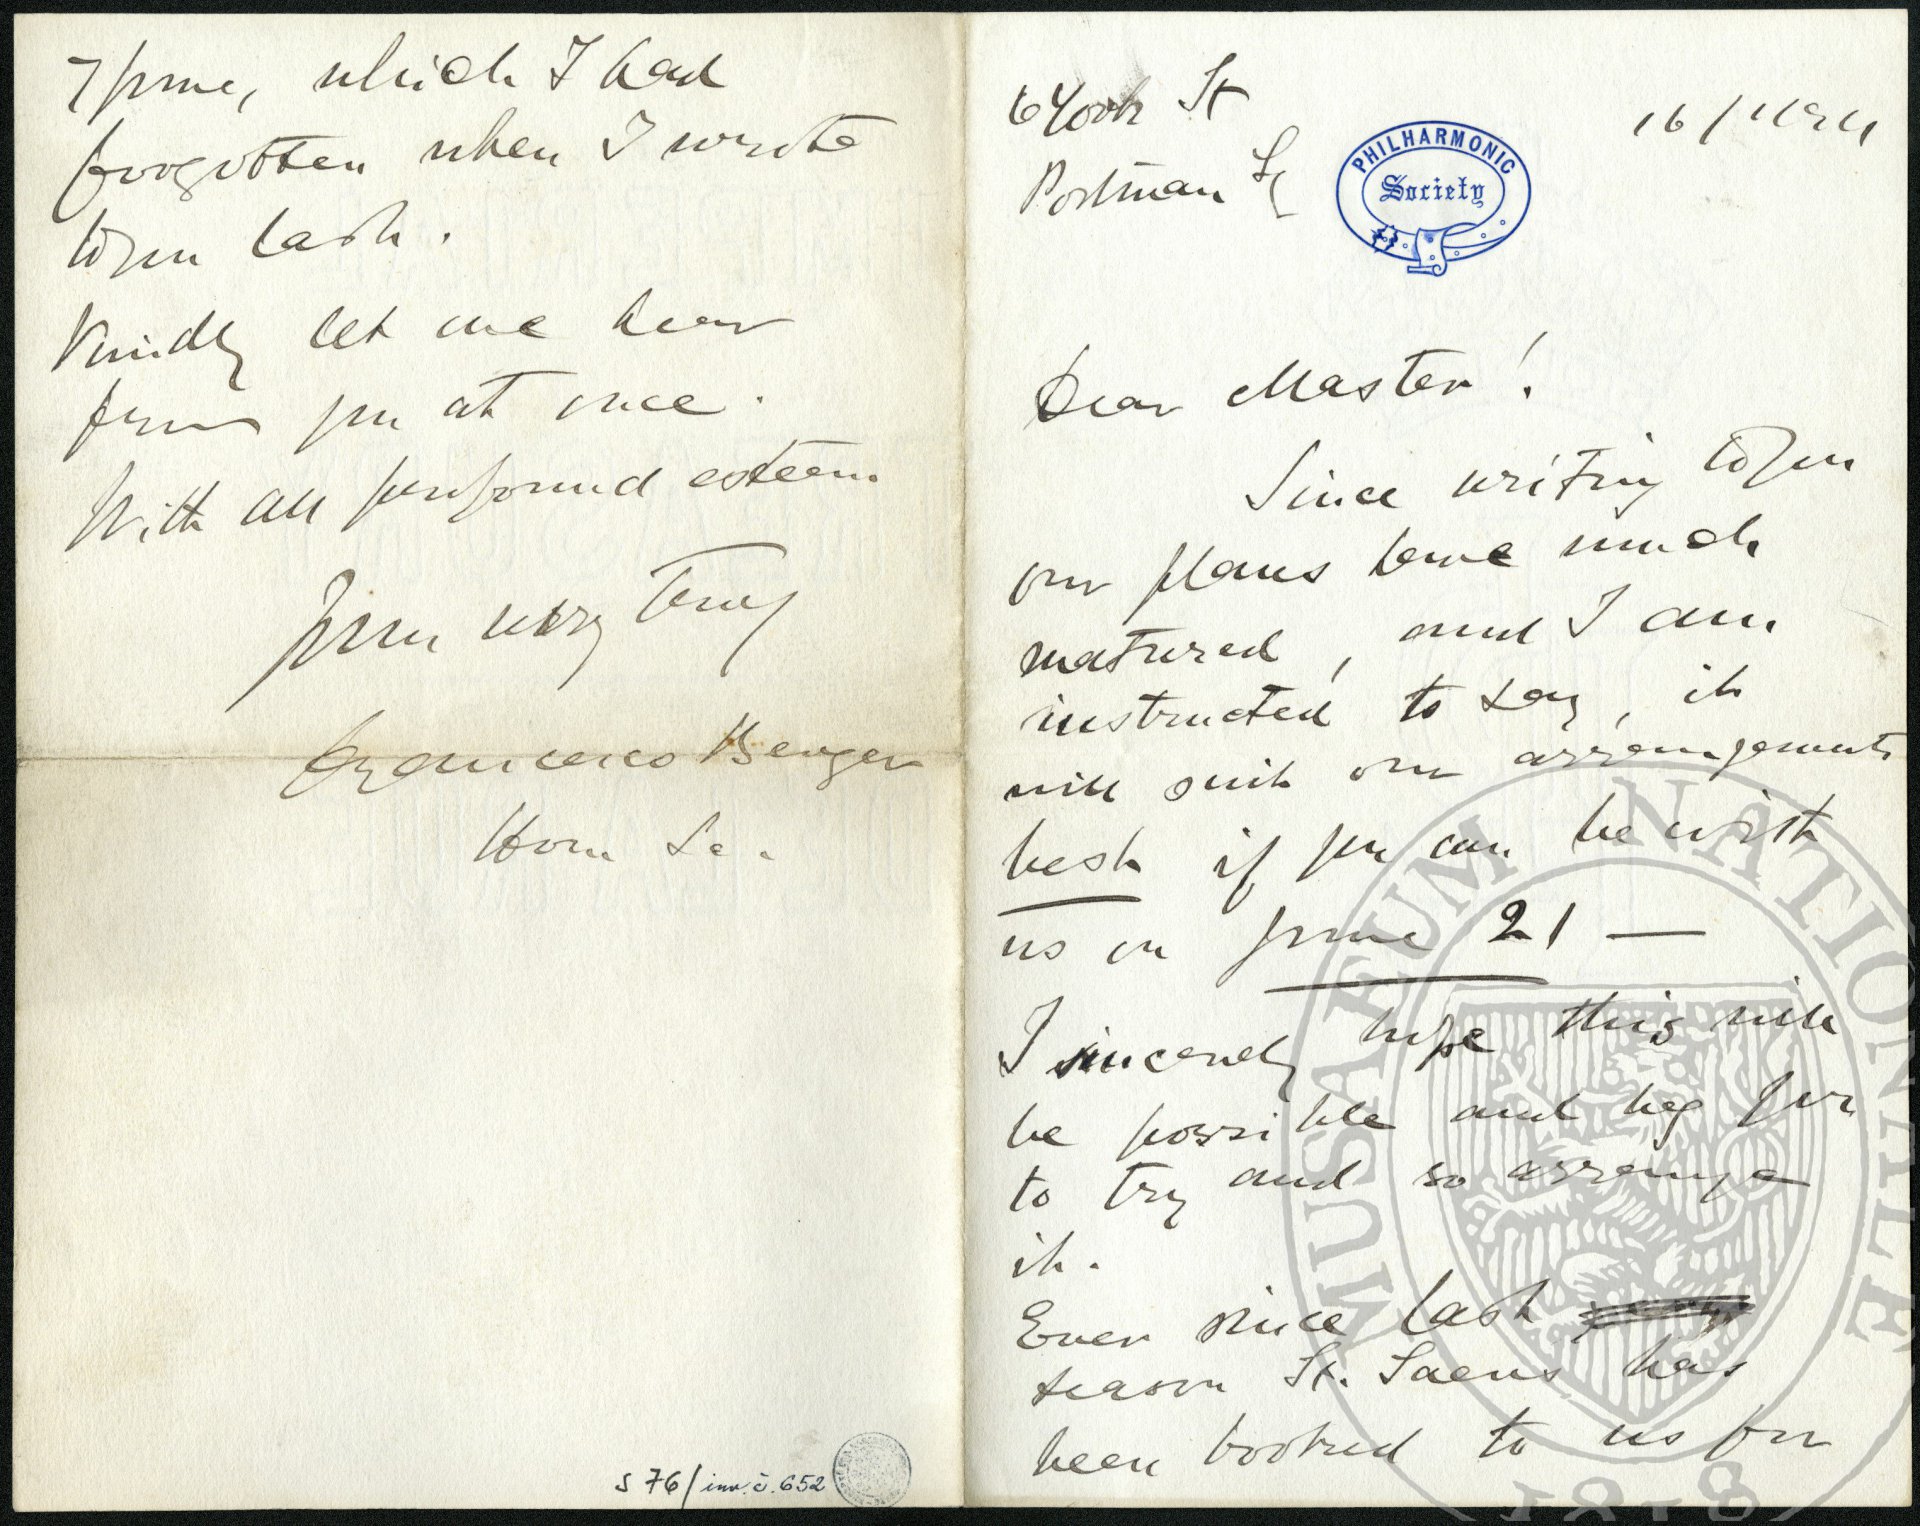 6 York St
Portman Sq
PHILHARMONIC
Society
16/11/94
Dear Master!
Since writing to you
our plans have much
matured, and I am
instructed to say, it
will suit our arrangements
best if you can be with
us on June 21 —
I sincerely hope this will
be possible and beg you
to try and so arrange
it.
Ever since last
season St. Saens has
been booked to us for
7 June, which I had
forgotten when I wrote
to you last.
Kindly let me hear
from you at once.
With all profound esteem
Yours very truly
Francesco Berger
Hon. Sec.
S 76/inv. č. 652
MUSAEUM NATIONALE
1818